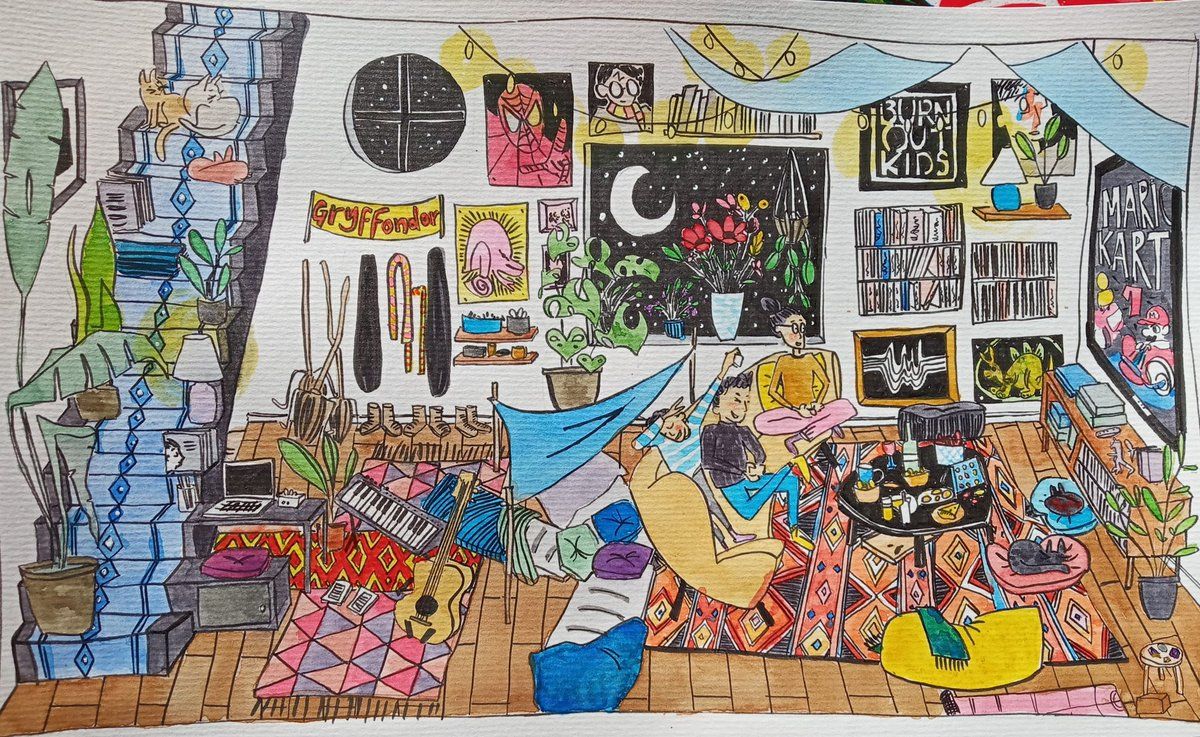 Gryffondor
BURN
OUT
KIDS
MARIO
KART